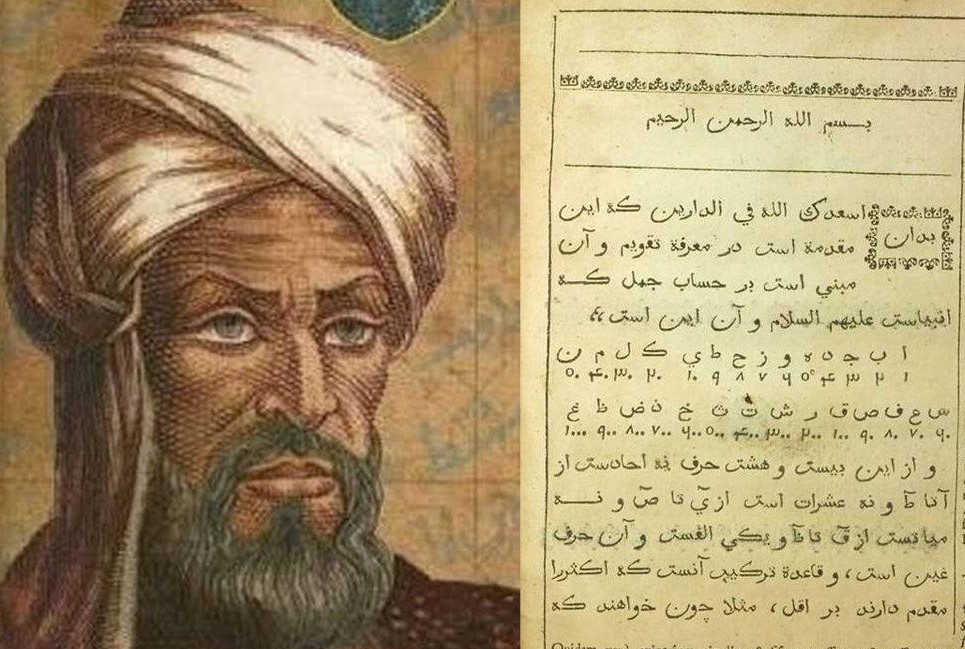 بسم الله الرحمن الرحيم
بدان اسعدك الله في الدارين كه اين
مقدمة است در معرفة تقويم و آن
مبني است بر حساب جمل كه
انبياست عليهم السلام و آن اين است
ا ب ج د ه و ز ح ط ي ك ل م ن
۱ ۲ ۳ ۴ ۵ ۶ ۷ ۸ ۹ ۱۰ ۲۰ ۳۰ ۴۰ ۵۰
س ع ف ص ق ر ش ت ث خ ذ ض ظ غ
۶۰ ۷۰ ۸۰ ۹۰ ۱۰۰ ۲۰۰ ۳۰۰ ۴۰۰ ۵۰۰ ۶۰۰ ۷۰۰ ۸۰۰ ۹۰۰ ۱۰۰۰
و از اين بيست و هشت حرف نه احادست از
آ تا ط و نه عشرات است از ي تا ص و نه
مياتست از ق تا ظ و يكي الفست و آن حرف
غين است، و قاعدة تركيب آنست كه اكثررا
مقدم دارند بر اقل، مثلا چون خواهند كه